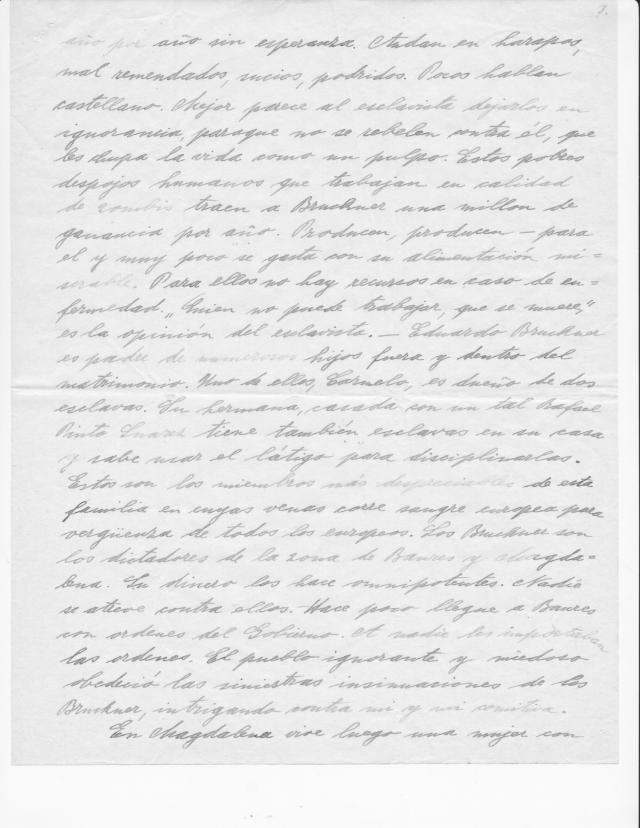 3.
año por año sin esperanza. Andan en harapos,
mal remendados, sucios, podridos. Pocos hablan
castellano. Mejor parece al esclavista dejarlos en
ignorancia, paraque no se rebelen contra él, que
les chupa la vida como un pulpo. Estos pobres
despojos humanos que trabajan en calidad
de zombis traen a Bruckner una millon de
ganancia por año. Producen, producen — para
el y muy poco se gasta con su alimentación mi=
serable. Para ellos no hay recursos en caso de en=
fermedad. „Quien no puede trabajar, que se muere,"
es la opinión del esclavista. — Eduardo Bruckner
es padre de numerosos hijos fuera y dentro del
matrimonio. Uno de ellos, Carmelo, es dueño de dos
esclavas. Su hermana, casada con un tal Rafael
Pinto Suarez tiene también esclavas en su casa
y sabe usar el látigo para disciplinarlas.
Estos son los miembros más despreciables de esta
familia en cuyas venas corre sangre europea para
vergüenza de todos los europeos. Los Bruckner son
los dictadores de la zona de Baures y Magda=
lena. Su dinero los hace omnipotentes. Nadie
se atreve contra ellos. Hace poco llegue a Baures
con ordenes del Gobierno. A nadie les importaban
las ordenes. El pueblo ignorante y miedoso
obedeció las siniestras insinuaciones de los
Bruckner, intrigando contra mi y mi comitiva.
En Magdalena vive luego una mujer con